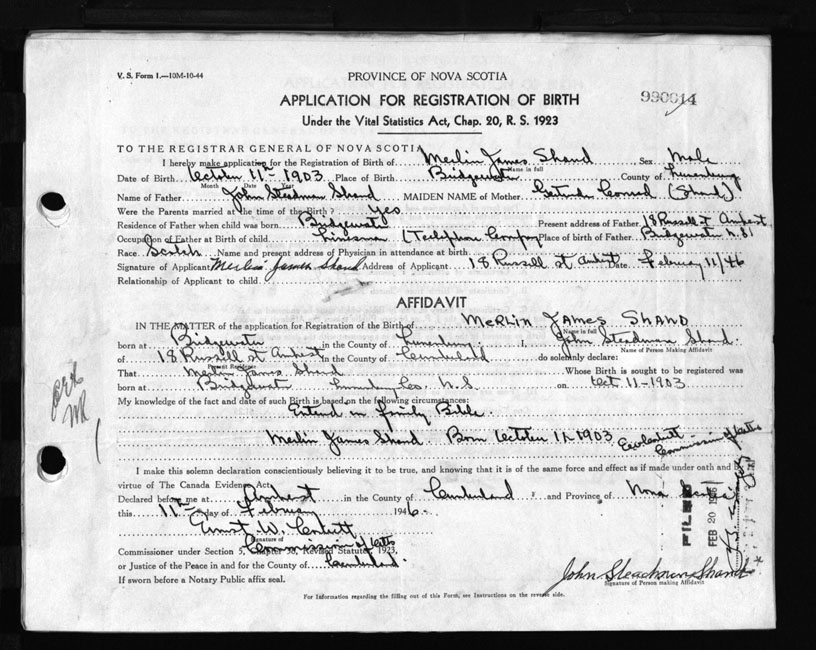 V. S. Form 1.—10M-10-44
PROVINCE OF NOVA SCOTIA
990014
APPLICATION FOR REGISTRATION OF BIRTH
Under the Vital Statistics Act, Chap. 20, R. S. 1923
TO THE REGISTRAR GENERAL OF NOVA SCOTIA
I hereby make application for the Registration of Birth of Merlin James Shand Sex Male
Name in full
Date of Birth October 11th 1903 Place of Birth Bridgewater County of Lunenburg
Month Date Year
Name of Father John Steadman Shand MAIDEN NAME of Mother Gertrude Conrad (Shand)
Were the Parents married at the time of the Birth? yes
Residence of Father when child was born Bridgewater Present address of Father 18 Russell St Amherst
Occupation of Father at Birth of child Linesman (Telephone Place of birth of Father Bridgewater N.S.
Race Scotch Name and present address of Physician in attendance at birth
Signature of Applicant Merlin James Shand Address of Applicant 18 Russell St Amherst Date February 11/46
Relationship of Applicant to child
AFFIDAVIT
IN THE MATTER of the application for Registration of the Birth of MERLIN JAMES SHAND
Name in full
born at Bridgewater in the County of Lunenburg I, John Steadman Shand
Name of Person Making Affidavit
of 18 Russell St Amherst in the County of Cumberland do solemnly declare:
Present Residence
That Merlin James Shand Whose Birth is sought to be registered was
born at Bridgewater Lunenburg Co. N.S on Oct 11-1903
My knowledge of the fact and date of such Birth is based on the following circumstances:
in Family Bible.
Merlin James Shand Born October 11 1903
I make this solemn declaration conscientiously believing it to be true, and knowing that it is of the same force and effect as if made under oath and by
virtue of The Canada Evidence Act.
Declared before me at Amherst in the County of Cumberland and Province of Nova Scotia
this 11th day of February 1946.
Ernst W.
Signature of
Commissioner under Section 5, Chapter Revised Statutes, 1923,
or Justice of the Peace in and for the County of Cumberland.
If sworn before a Notary Public affix seal.
FILED
FEB 20 1951
John Steadman Shand
Signature of Person making Affidavit
For Information regarding the filling out of this Form, see Instructions on the reverse side.